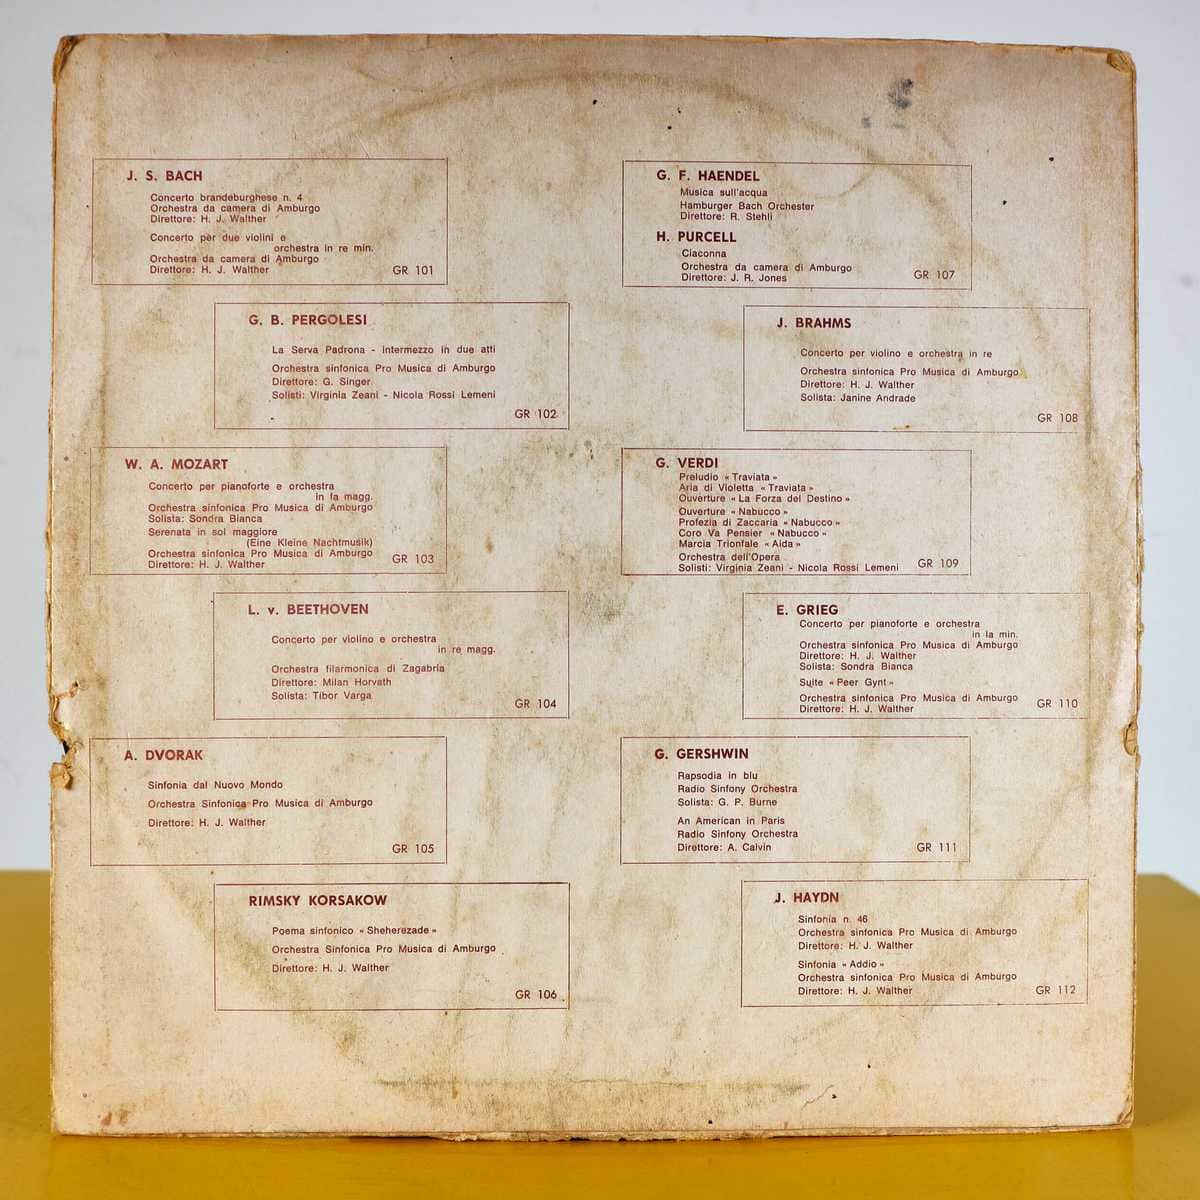 J. S. BACH
Concerto brandeburghese n. 4
Orchestra da camera di Amburgo
Direttore: H. J. Walther
Concerto per due violini e
orchestra in re min.
Orchestra da camera di Amburgo
Direttore: H. J. Walther
GR 101
G. B. PERGOLESI
La Serva Padrona - intermezzo in due atti
Orchestra sinfonica Pro Musica di Amburgo
Direttore: G. Singer
Solisti: Virginia Zeani - Nicola Rossi Lemeni
GR 102
W. A. MOZART
Concerto per pianoforte e orchestra
in fa magg.
Orchestra sinfonica Pro Musica di Amburgo
Solista: Sondra Bianca
Serenata in sol maggiore
(Eine Kleine Nachtmusik)
Orchestra sinfonica Pro Musica di Amburgo
Direttore: H. J. Walther
GR 103
L. v. BEETHOVEN
Concerto per violino e orchestra
in re magg.
Orchestra filarmonica di Zagabria
Direttore: Milan Horvath
Solista: Tibor Varga
GR 104
A. DVORAK
Sinfonia dal Nuovo Mondo
Orchestra Sinfonica Pro Musica di Amburgo
Direttore: H. J. Walther
GR 105
RIMSKY KORSAKOW
Poema sinfonico « Sheherezade »
Orchestra Sinfonica Pro Musica di Amburgo
Direttore: H. J. Walther
GR 106
G. F. HAENDEL
Musica sull'acqua
Hamburger Bach Orchester
Direttore: R. Stehli
H. PURCELL
Ciaconna
Orchestra da camera di Amburgo
Direttore: J. R. Jones
GR 107
J. BRAHMS
Concerto per violino e orchestra in re
Orchestra sinfonica Pro Musica di Amburgo
Direttore: H. J. Walther
Solista: Janine Andrade
GR 108
G. VERDI
Preludio « Traviata »
Aria di Violetta « Traviata »
Ouverture « La Forza del Destino »
Ouverture « Nabucco »
Profezia di Zaccaria « Nabucco »
Coro Va Pensier « Nabucco »
Marcia Trionfale « Aida »
Orchestra dell'Opera
Solisti: Virginia Zeani - Nicola Rossi Lemeni
GR 109
E. GRIEG
Concerto per pianoforte e orchestra
in la min.
Orchestra sinfonica Pro Musica di Amburgo
Direttore: H. J. Walther
Solista: Sondra Bianca
Suite « Peer Gynt »
Orchestra sinfonica Pro Musica di Amburgo
Direttore: H. J. Walther
GR 110
G. GERSHWIN
Rapsodia in blu
Radio Sinfony Orchestra
Solista: G. P. Burne
An American in Paris
Radio Sinfony Orchestra
Direttore: A. Calvin
GR 111
J. HAYDN
Sinfonia n. 46
Orchestra sinfonica Pro Musica di Amburgo
Direttore: H. J. Walther
Sinfonia « Addio »
Orchestra sinfonica Pro Musica di Amburgo
Direttore: H. J. Walther
GR 112